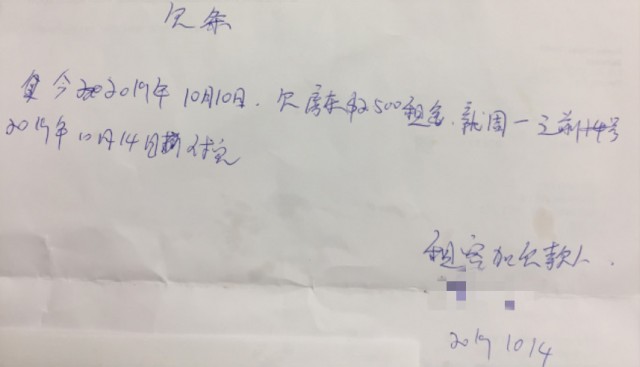 欠条
今 2019年10月10日. 欠房东 2500租金. 周一之前
2019年10月14日 付完
租客加欠款人.
2019 10 14